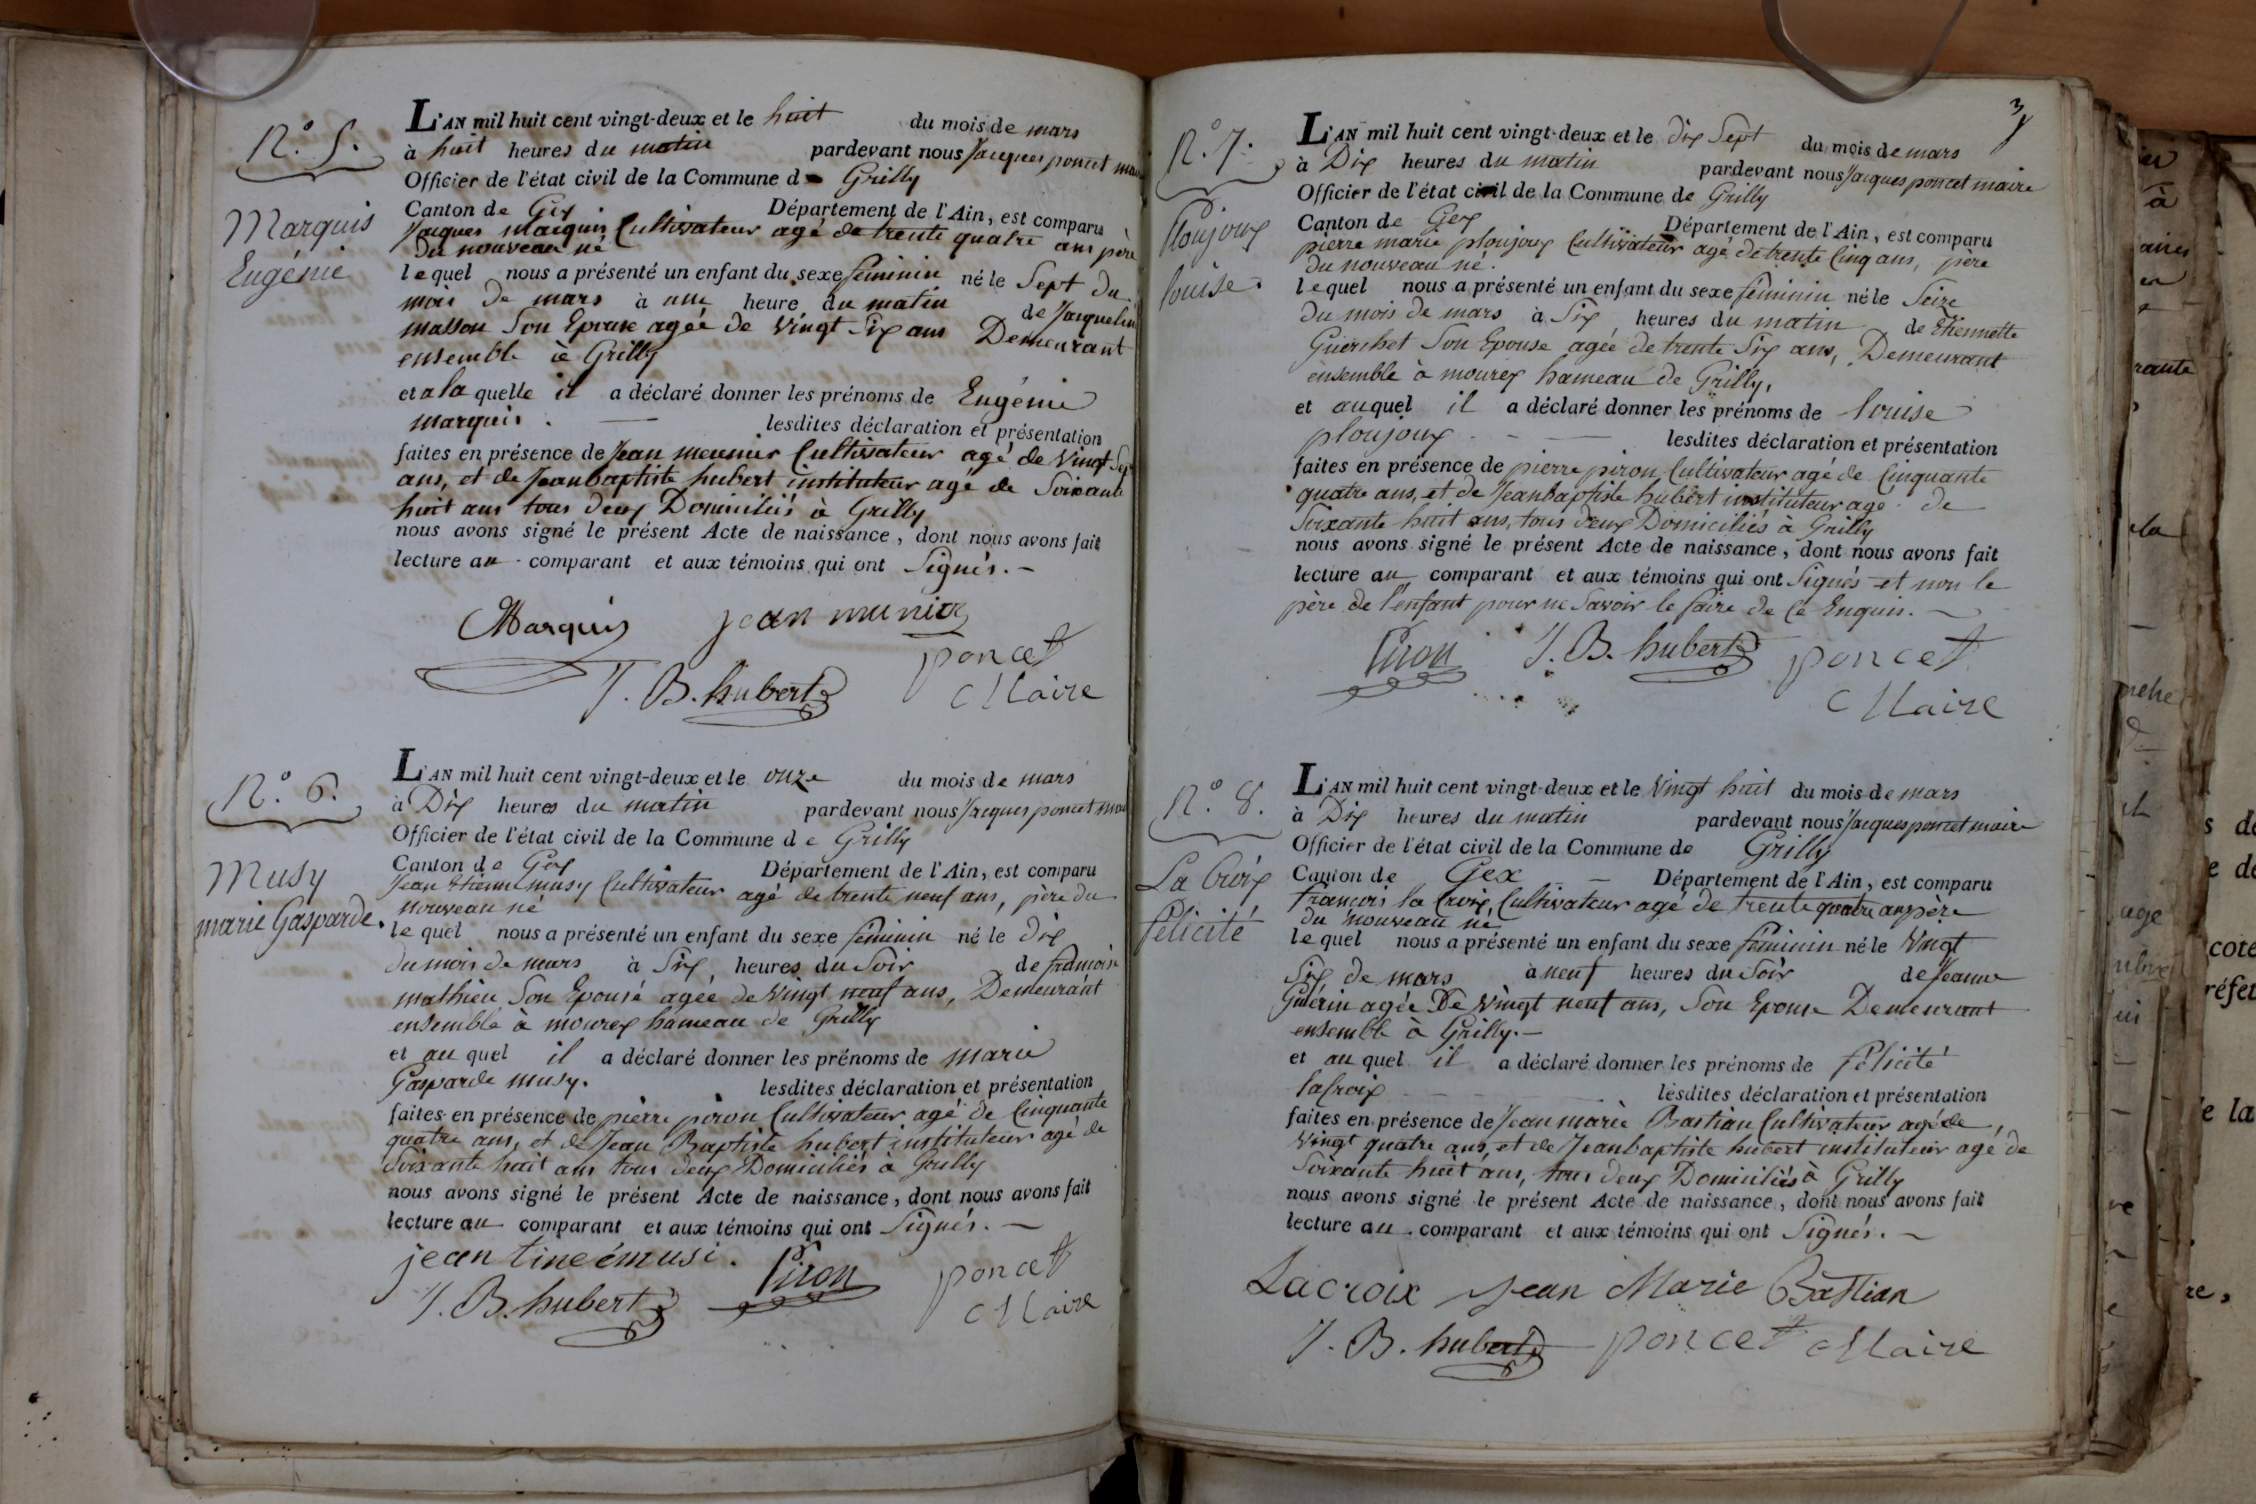 N.° 5.
Marquis
Eugénie
L'AN mil huit cent vingt-deux et le huit du mois de mars
à huit heures du matin pardevant nous Jacques poncet
Officier de l'état civil de la Commune de Grilly
Canton de Gex Département de l'Ain, est comparu
Jacques marquis Cultivateur agé de trente quatre ans père
du nouveau né
lequel nous a présenté un enfant du sexe féminin né le Sept du
mois de mars à une heure du matin de Jacqueline
masson Son Epouse agée de vingt Six ans Demeurant
ensemble à Grilly
et a la quelle il a déclaré donner les prénoms de Eugénie
marquis. — lesdites déclaration et présentation
faites en présence de Jean meunier Cultivateur agé de Vingt Sept
ans, et de Jeanbaptiste hubert instituteur agé de Soixante
huit ans tous deux Domiciliés à Grilly
nous avons signé le présent Acte de naissance, dont nous avons fait
lecture au comparant et aux témoins qui ont Signés. —
Marquis jean munier
J. B. hubert poncet
Maire
N.° 6.
Musy
marie Gasparde.
L'AN mil huit cent vingt-deux et le onze du mois de mars
à Dix heures du matin pardevant nous Jacques poncet
Officier de l'état civil de la Commune de Grilly
Canton de Gex Département de l'Ain, est comparu
Jean Etienne musy Cultivateur agé de trente neuf ans, père du
nouveau né
le quel nous a présenté un enfant du sexe féminin né le dix
du mois de mars à Six heures du Soir de framoise
mathieu Son Epouse agée de Vingt neuf ans, Demeurant
ensemble à mourex hameau de Grilly
et au quel il a déclaré donner les prénoms de marie
Gasparde musy. lesdites déclaration et présentation
faites en présence de pierre piron Cultivateur agé de Cinquante
quatre ans, et de Jean Baptiste hubert instituteur agé de
Soixante huit ans tous deux Domiciliés à Grilly
nous avons signé le présent Acte de naissance, dont nous avons fait
lecture au comparant et aux témoins qui ont Signés. —
jean tineémusi. Piron poncet
J. B. hubert Maire
3
N.° 7.
Ploujoux
louise.
L'AN mil huit cent vingt-deux et le dix Sept du mois de mars
à Dix heures du matin pardevant nous Jacques poncet maire
Officier de l'état civil de la Commune de Grilly
Canton de Gex Département de l'Ain, est comparu
pierre marie ploujoux Cultivateur agé de trente Cinq ans, père
du nouveau né.
lequel nous a présenté un enfant du sexe féminin né le Seize
du mois de mars à Six heures du matin de Etiennette
Guerchet Son Epouse agée de trente Six ans, Demeurant
ensemble à mourex hameau de Grilly,
et auquel il a déclaré donner les prénoms de louise
ploujoux - — lesdites déclaration et présentation
faites en présence de pierre piron Cultivateur agé de Cinquante
quatre ans, et de Jeanbaptiste hubert instituteur agé de
Soixante huit ans, tous deux Domiciliés à Grilly
nous avons signé le présent Acte de naissance, dont nous avons fait
lecture au comparant et aux témoins qui ont Signés et non le
père de l'enfant pour ne Savoir le faire de ce Enquis. —
Piron J. B. hubert poncet
Maire
N.° 8.
La Croix
félicité
L'AN mil huit cent vingt-deux et le Vingt huit du mois de mars
à Dix heures du matin pardevant nous Jacques poncet maire
Officier de l'état civil de la Commune de Grilly
Canton de Gex — Département de l'Ain, est comparu
françois la Croix Cultivateur agé de trente quatre ans père
du nouveau né
lequel nous a présenté un enfant du sexe féminin né le Vingt
Six de mars à neuf heures du Soir de Jeanne
Guérin agée De Vingt neuf ans, Son Epouse Demeurant
ensemble à Grilly. —
et au quel il a déclaré donner les prénoms de félicité
lacroix lesdites déclaration et présentation
faites en présence de Jean marie Bastian Cultivateur agé de
Vingt quatre ans, et de Jeanbaptiste hubert instituteur agé de
Soixante huit ans, tous deux Domiciliés à Grilly
nous avons signé le présent Acte de naissance, dont nous avons fait
lecture au comparant et aux témoins qui ont Signés. —
Lacroix Jean Marie Bastian
J. B. hubert poncet Maire